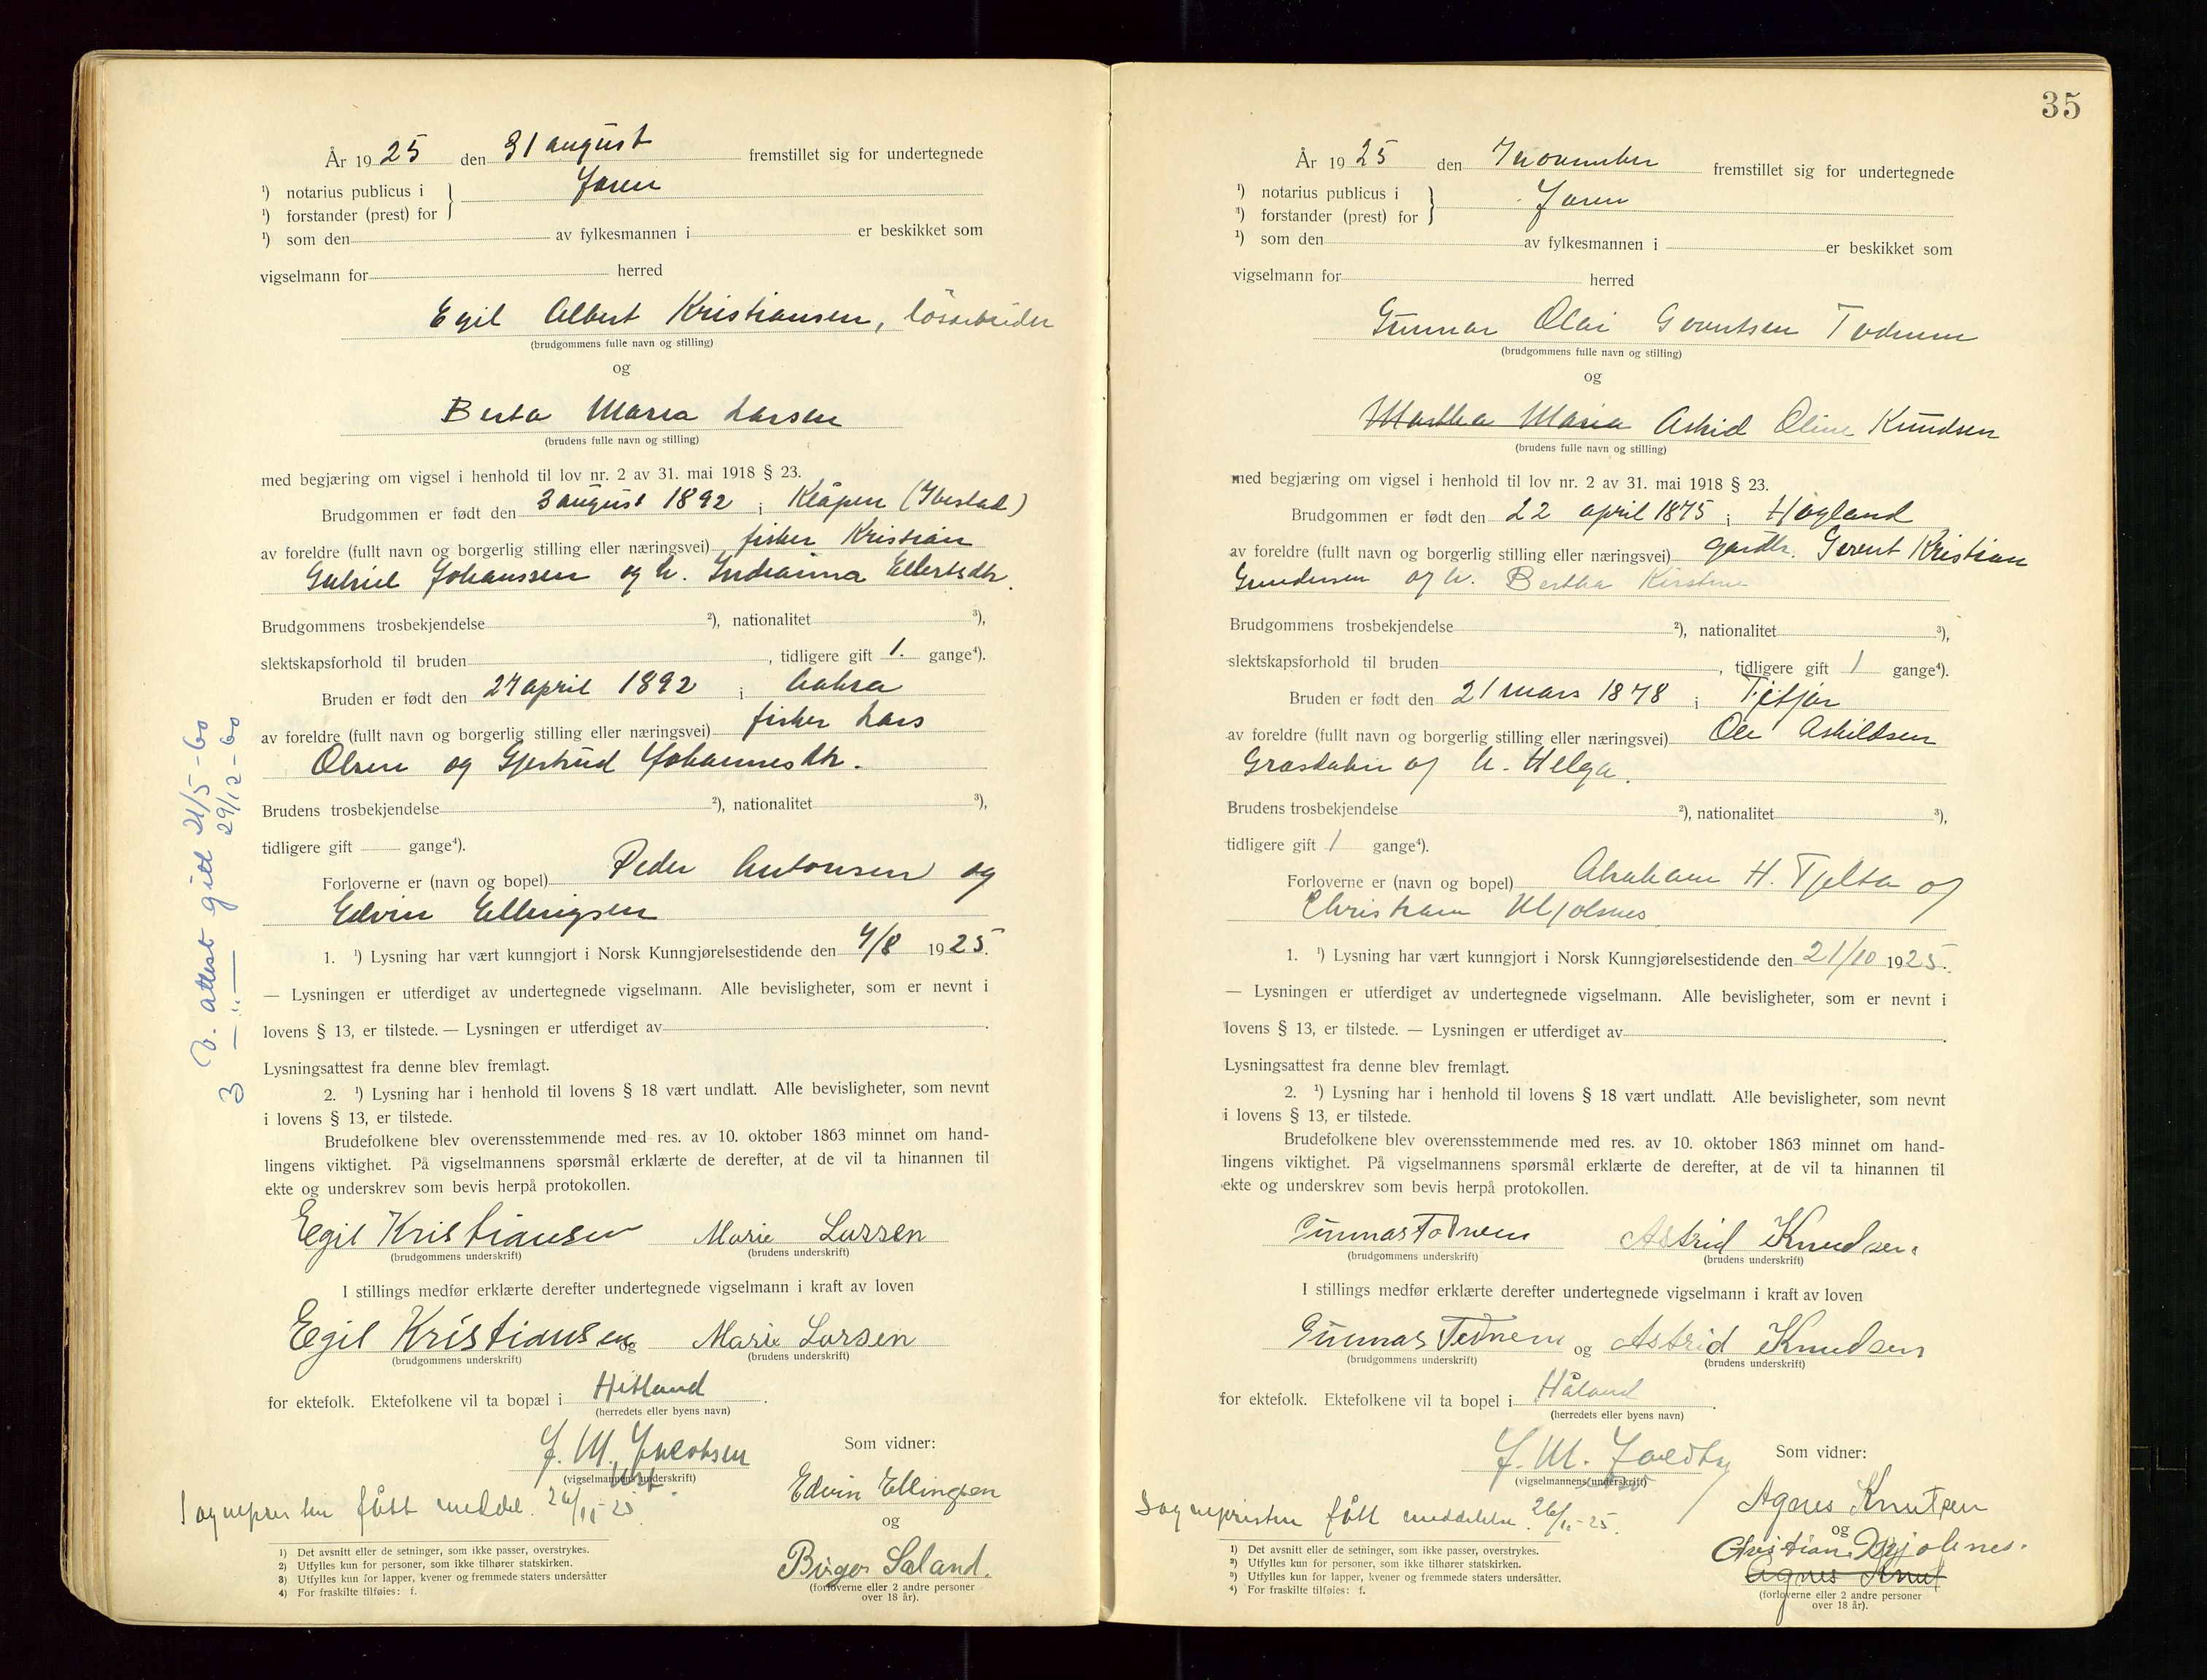 År 1925 den 31 august fremstillet sig for undertegnede
¹) notarius publicus i } Jæren
¹) forstander (prest) for
¹) som den av fylkesmannen i er beskikket som
vigselmann for herred
Egil Albert Kristiansen, løsarbeider
(brudgommens fulle navn og stilling)
og
Berta Maria Larsen
(brudens fulle navn og stilling)
med begjæring om vigsel i henhold til lov nr. 2 av 31. mai 1918 § 23.
Brudgommen er født den 3 august 1892 i Kråpen (Ibestad)
av foreldre (fullt navn og borgerlig stilling eller næringsvei) fisker Kristian
Gabriel Johanssen og h. Indianna Ellertsdtr.
Brudgommens trosbekjendelse ²), nationalitet ³),
slektskapsforhold til bruden , tidligere gift 1. gange⁴).
Bruden er født den 27 april 1892 i
av foreldre (fullt navn og borgerlig stilling eller næringsvei) fisker Lars
Olsen og Gjertrud Johannesdtr.
Brudens trosbekjendelse ²), nationalitet ³),
tidligere gift gange⁴).
Forloverne er (navn og bopel) Peder Antonsen og
Edvin Ellingsen
1. ¹) Lysning har vært kunngjort i Norsk Kunngjørelsestidende den 4/8 1925.
— Lysningen er utferdiget av undertegnede vigselmann. Alle bevisligheter, som er nevnt i
lovens § 13, er tilstede. — Lysningen er utferdiget av .
Lysningsattest fra denne blev fremlagt.
2. ¹) Lysning har i henhold til lovens § 18 vært undlatt. Alle bevisligheter, som nevnt
i lovens § 13, er tilstede.
Brudefolkene blev overensstemmende med res. av 10. oktober 1863 minnet om hand-
lingens viktighet. På vigselmannens spørsmål erklærte de derefter, at de vil ta hinannen til
ekte og underskrev som bevis herpå protokollen.
Egil Kristiansen Marie Larsen
(brudgommens underskrift) (brudens underskrift)
I stillings medfør erklærte derefter undertegnede vigselmann i kraft av loven
Egil Kristiansen og Marie Larsen
(brudgommens underskrift) (brudens underskrift)
for ektefolk. Ektefolkene vil ta bopæl i Hetland .
(herredets eller byens navn)
J. M. Jacobsen
(vigselmannens underskrift)
Som vidner:
Edvin Ellingsen
og
Birger Søland.
(forloverne eller 2 andre personer
over 18 år).
Sognepresten fått meddel. 26/11-25
1) Det avsnitt eller de setninger, som ikke passer, overstrykes.
2) Utfylles kun for personer, som ikke tilhører statskirken.
3) Utfylles kun for lapper, kvener og fremmede staters undersåtter
4) For fraskilte tilføies: f.
V. attest gitt 21/5-60
3 — " — 29/12-60
35
År 1925 den 7 november fremstillet sig for undertegnede
¹) notarius publicus i } Jæren
¹) forstander (prest) for
¹) som den av fylkesmannen i er beskikket som
vigselmann for herred
Gunnar Olai Gerentsen Todnem
(brudgommens fulle navn og stilling)
og
Martha Maria Astrid Oline Knudsen
(brudens fulle navn og stilling)
med begjæring om vigsel i henhold til lov nr. 2 av 31. mai 1918 § 23.
Brudgommen er født den 22 april 1875 i Høgland
av foreldre (fullt navn og borgerlig stilling eller næringsvei) gårdbr. Gerent Kristian
Gundersen og h. Bertha Kirstine
Brudgommens trosbekjendelse ²), nationalitet ³),
slektskapsforhold til bruden , tidligere gift 1 gange⁴).
Bruden er født den 21 mars 1878 i
av foreldre (fullt navn og borgerlig stilling eller næringsvei) Ole Askildsen
Græsdalen og h. Helga.
Brudens trosbekjendelse ²), nationalitet ³),
tidligere gift 1 gange⁴).
Forloverne er (navn og bopel) Abraham H. Tjelta og
Christian Mjølsnes
1. ¹) Lysning har vært kunngjort i Norsk Kunngjørelsestidende den 21/10 1925.
— Lysningen er utferdiget av undertegnede vigselmann. Alle bevisligheter, som er nevnt i
lovens § 13, er tilstede. — Lysningen er utferdiget av .
Lysningsattest fra denne blev fremlagt.
2. ¹) Lysning har i henhold til lovens § 18 vært undlatt. Alle bevisligheter, som nevnt
i lovens § 13, er tilstede.
Brudefolkene blev overensstemmende med res. av 10. oktober 1863 minnet om hand-
lingens viktighet. På vigselmannens spørsmål erklærte de derefter, at de vil ta hinannen til
ekte og underskrev som bevis herpå protokollen.
Gunnar Todnem Astrid Knudsen.
(brudgommens underskrift) (brudens underskrift)
I stillings medfør erklærte derefter undertegnede vigselmann i kraft av loven
Gunnar Todnem og Astrid Knudsen
(brudgommens underskrift) (brudens underskrift)
for ektefolk. Ektefolkene vil ta bopel i Håland .
(herredets eller byens navn)
(vigselmannens underskrift)
Som vidner:
Agnes Knutsen
og
Christian Mjølsnes.
Agnes Knut
(forloverne eller 2 andre personer
over 18 år).
Sognepresten fått meddelelse 26/11-25.
1) Det avsnitt eller de setninger, som ikke passer, overstrykes.
2) Utfylles kun for personer, som ikke tilhører statskirken.
³) Utfylles kun for lapper, kvener og fremmede staters undersåtter.
⁴) For fraskilte tilføies: f.